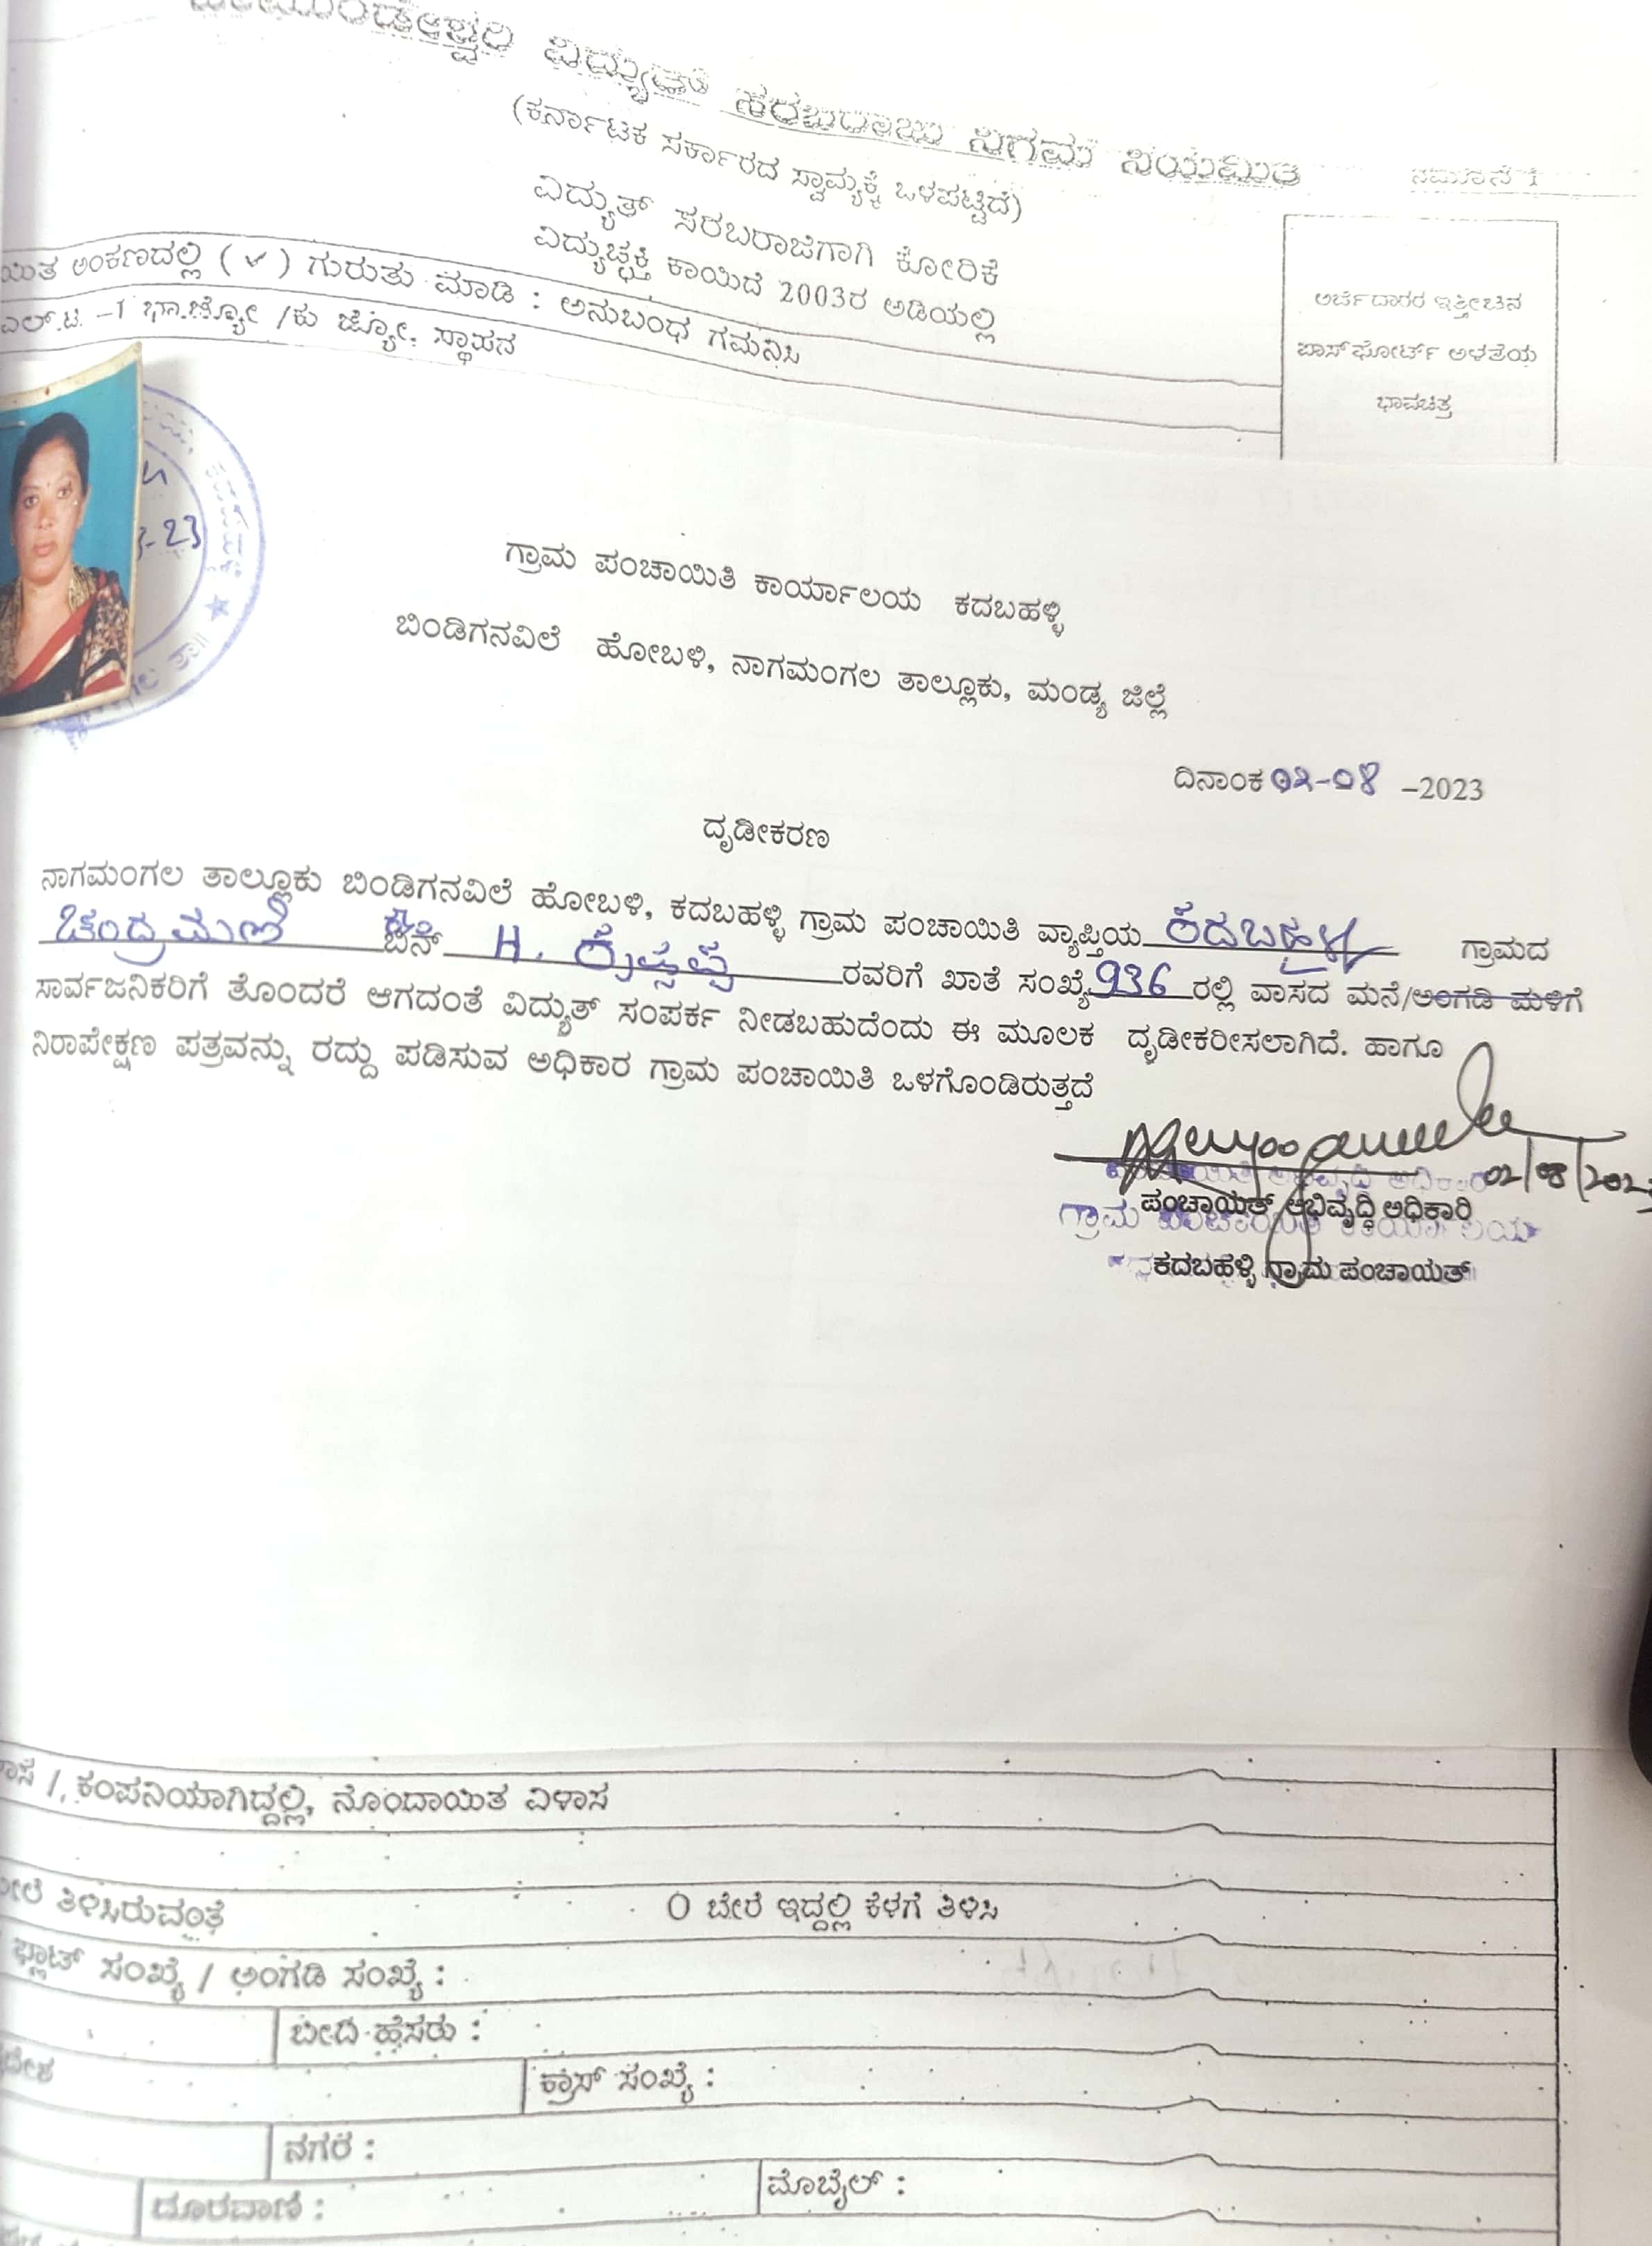 ವಿದ್ಯುತ್ ಸರಬರಾಜು ನಿಗಮ ನಿಯಮಿತ
ನಮೂನೆ 1
(ಕರ್ನಾಟಕ ಸರ್ಕಾರದ ಸ್ವಾಮ್ಯಕ್ಕೆ ಒಳಪಟ್ಟಿದೆ)
ವಿದ್ಯುತ್ ಸರಬರಾಜಿಗಾಗಿ ಕೋರಿಕೆ
ವಿದ್ಯುಚ್ಛಕ್ತಿ ಕಾಯಿದೆ 2003ರ ಅಡಿಯಲ್ಲಿ
ಅಂಕಣದಲ್ಲಿ (✓) ಗುರುತು ಮಾಡಿ : ಅನುಬಂಧ ಗಮನಿಸಿ
ಎಲ್.ಟಿ. –1 ಭಾ.ಜ್ಯೋ /ಕು ಜ್ಯೋ, ಸ್ಥಾಪನ
ಅರ್ಜಿದಾರರ ಇತ್ತೀಚಿನ
ಪಾಸ್‌ಪೋರ್ಟ್ ಅಳತೆಯ
ಭಾವಚಿತ್ರ
ಗ್ರಾಮ ಪಂಚಾಯಿತಿ ಕಾರ್ಯಾಲಯ ಕದಬಹಳ್ಳಿ
ಬಿಂಡಿಗನವಿಲೆ ಹೋಬಳಿ, ನಾಗಮಂಗಲ ತಾಲ್ಲೂಕು, ಮಂಡ್ಯ ಜಿಲ್ಲೆ
ದಿನಾಂಕ 02-08 –2023
ದೃಡೀಕರಣ
ನಾಗಮಂಗಲ ತಾಲ್ಲೂಕು ಬಿಂಡಿಗನವಿಲೆ ಹೋಬಳಿ, ಕದಬಹಳ್ಳಿ ಗ್ರಾಮ ಪಂಚಾಯಿತಿ ವ್ಯಾಪ್ತಿಯ ಕದಬಹಳ್ಳಿ ಗ್ರಾಮದ
ಚಂದ್ರಮಣಿ ಬಿನ್ H. ಕೃಷ್ಣಪ್ಪ ರವರಿಗೆ ಖಾತೆ ಸಂಖ್ಯೆ 936 ರಲ್ಲಿ ವಾಸದ ಮನೆ/ಅಂಗಡಿ ಮಳಿಗೆ
ಸಾರ್ವಜನಿಕರಿಗೆ ತೊಂದರೆ ಆಗದಂತೆ ವಿದ್ಯುತ್ ಸಂಪರ್ಕ ನೀಡಬಹುದೆಂದು ಈ ಮೂಲಕ ದೃಡೀಕರೀಸಲಾಗಿದೆ. ಹಾಗೂ
ನಿರಾಪೇಕ್ಷಣ ಪತ್ರವನ್ನು ರದ್ದು ಪಡಿಸುವ ಅಧಿಕಾರ ಗ್ರಾಮ ಪಂಚಾಯಿತಿ ಒಳಗೊಂಡಿರುತ್ತದೆ
02/08/2023
ಪಂಚಾಯತ್ ಅಭಿವೃದ್ಧಿ ಅಧಿಕಾರಿ
ಕದಬಹಳ್ಳಿ ಗ್ರಾಮ ಪಂಚಾಯತ್
/, ಕಂಪನಿಯಾಗಿದ್ದಲ್ಲಿ, ನೊಂದಾಯಿತ ವಿಳಾಸ
ತಿಳಿಸಿರುವಂತೆ
O ಬೇರೆ ಇದ್ದಲ್ಲಿ ಕೆಳಗೆ ತಿಳಿಸಿ
ಫ್ಲಾಟ್ ಸಂಖ್ಯೆ / ಅಂಗಡಿ ಸಂಖ್ಯೆ :
ಬೀದಿ ಹೆಸರು :
ಕ್ರಾಸ್ ಸಂಖ್ಯೆ :
ನಗರ :
ದೂರವಾಣಿ :
ಮೊಬೈಲ್ :